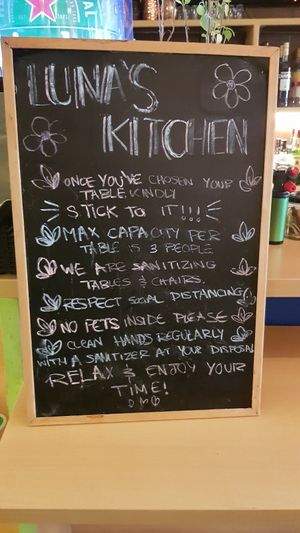 LUNA'S
KITCHEN
ONCE YOU'VE CHOSEN YOUR
TABLE KINDLY
STICK TO IT!!!
MAX CAPACITY PER
TABLE IS 3 PEOPLE
WE ARE SANITIZING
TABLES & CHAIRS.
RESPECT SOCIAL DISTANCING
NO PETS INSIDE PLEASE
CLEAN HANDS REGULARLY
WITH A SANITIZER AT YOUR DISPOSAL
RELAX & ENJOY YOUR
TIME!